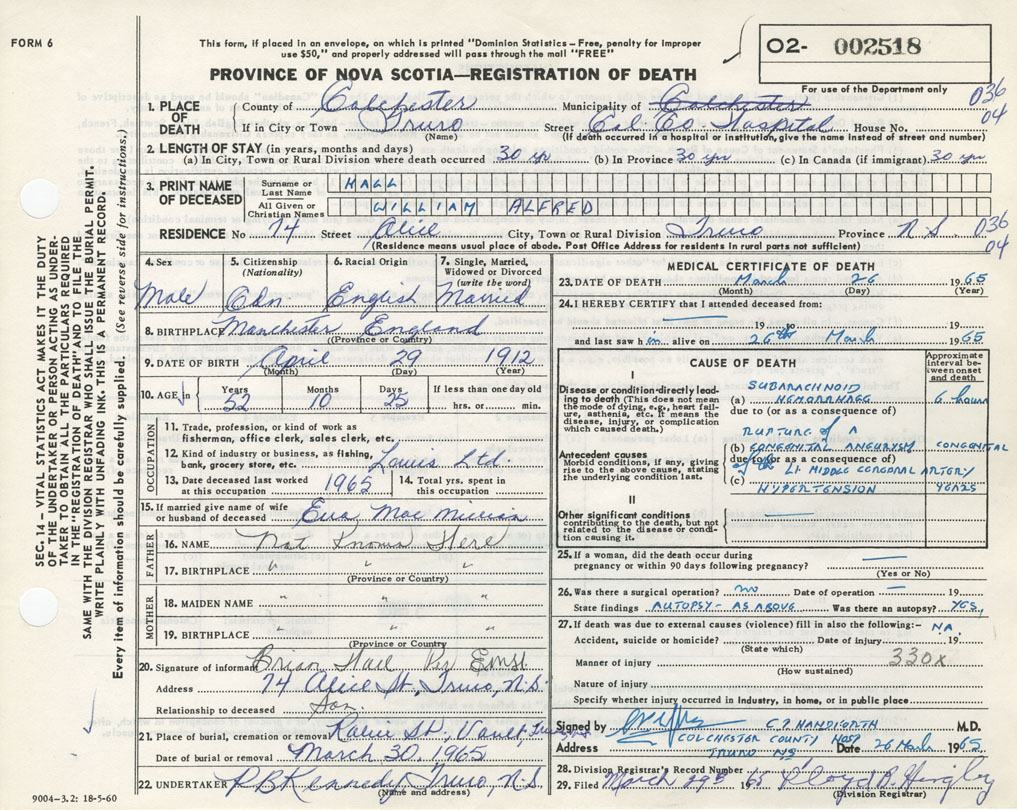 FORM 6
This form, if placed in an envelope, on which is printed "Dominion Statistics—Free, penalty for improper
use $50," and properly addressed will pass through the mail "FREE"
O2- 002518
For use of the Department only
PROVINCE OF NOVA SCOTIA—REGISTRATION OF DEATH
036
04
1. PLACE OF DEATH
County of Colchester Municipality of Colchester
If in City or Town Truro Street Col. Co. Hospital House No.
(Name) (If death occurred in a hospital or institution, give the name instead of street and number)
2. LENGTH OF STAY (in years, months and days)
(a) In City, Town or Rural Division where death occurred 30 yrs (b) In Province 30 yrs (c) In Canada (if immigrant) 30 yrs
3. PRINT NAME OF DECEASED
Surname or Last Name HALL
All Given or Christian Names WILLIAM ALFRED
RESIDENCE No 74 Street Alice City, Town or Rural Division Truro Province N.S. 036
04
(Residence means usual place of abode. Post Office Address for residents in rural parts not sufficient)
4. Sex Male
5. Citizenship (Nationality) Cdn.
6. Racial Origin English
7. Single, Married, Widowed or Divorced (write the word) Married
8. BIRTHPLACE Manchester England
(Province or Country)
9. DATE OF BIRTH April 29 1912
(Month) (Day) (Year)
10. AGE in Years 52 Months 10 Days 25 If less than one day old hrs. or min.
OCCUPATION
11. Trade, profession, or kind of work as
fisherman, office clerk, sales clerk, etc.
12. Kind of industry or business, as fishing,
bank, grocery store, etc. Lewis Ltd.
13. Date deceased last worked at this occupation 1965
14. Total yrs. spent in this occupation
15. If married give name of wife
or husband of deceased Eva Mac
FATHER
16. NAME Not Known Here
17. BIRTHPLACE " "
(Province or Country)
MOTHER
18. MAIDEN NAME " "
19. BIRTHPLACE " "
(Province or Country)
20. Signature of informant Brian Hall Per
Address 74 Alice St., Truro, N.S.
Relationship to deceased Son
21. Place of burial, cremation or removal St. Vault,
Date of burial or removal March 30, 1965
22. UNDERTAKER R B Kennedy, Truro, N.S.
(Name and address)
MEDICAL CERTIFICATE OF DEATH
23. DATE OF DEATH March 26 1965
(Month) (Day) (Year)
24. I HEREBY CERTIFY that I attended deceased from:
19 to 19
and last saw him alive on 26th March 1965
CAUSE OF DEATH
Approximate interval between onset and death
I
Disease or condition directly leading to death (This does not mean the mode of dying, e.g., heart failure, asthenia, etc. It means the disease, injury, or complication which caused death.)
SUBARACHNOID
(a) HEMORRHAGE 6 hours
due to (or as a consequence of)
RUPTURE of A
Antecedent causes
Morbid conditions, if any, giving rise to the above cause, stating the underlying condition last.
(b) CONGENITAL ANEURYSM CONGENITAL
due to (or as a consequence of)
of the Lt. MIDDLE CEREBRAL ARTERY
(c) HYPERTENSION YEARS
II
Other significant conditions
contributing to the death, but not related to the disease or condition causing it.
25. If a woman, did the death occur during
pregnancy or within 90 days following pregnancy?
(Yes or No)
26. Was there a surgical operation? no Date of operation — 19
State findings AUTOPSY - AS ABOVE Was there an autopsy? YES,
27. If death was due to external causes (violence) fill in also the following:- N.A.
Accident, suicide or homicide? Date of injury 19
(State which)
330X
Manner of injury
(How sustained)
Nature of injury
Specify whether injury occurred in Industry, in home, or in public place
Signed by C. J. HANDFORTH M.D.
Address COLCHESTER COUNTY HOSP TRURO NS Date 26 March 1965
28. Division Registrar's Record Number
29. Filed March 29th 1965
(Division Registrar)
9004-3.2: 18-5-60
SEC. 14—VITAL STATISTICS ACT MAKES IT THE DUTY
OF THE UNDERTAKER OR PERSON ACTING AS UNDER-
TAKER TO OBTAIN ALL THE PARTICULARS REQUIRED
IN THE "REGISTRATION OF DEATH" AND TO FILE THE
SAME WITH THE DIVISION REGISTRAR WHO SHALL ISSUE THE BURIAL PERMIT.
WRITE PLAINLY WITH UNFADING INK. THIS IS A PERMANENT RECORD.
Every item of information should be carefully supplied. (See reverse side for instructions.)